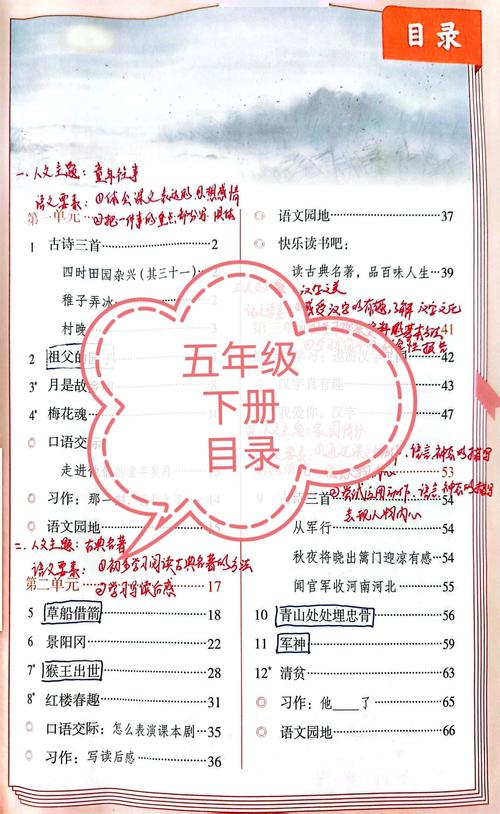 目录
一、人文主题：童年往事
语文要素：①体会课文表达的思想感情
第一单元
②把一件事的重点部分写具体
1 古诗三首 2
四时田园杂兴（其三十一） 2
稚子弄冰
村晚
2 祖父的园子
3 月是故乡
4* 梅花魂
口语交际
走进他们的童年岁月
习作：那一刻 14
语文园地 15
二、人文主题：古典名著
语文要素：①初步学习阅读古典名著的方法
第二单元 17
②学习写读后感
5 草船借箭 18
6 景阳冈 22
7* 猴王出世 28
8* 红楼春趣 31
口语交际：怎么表演课本剧 35
习作：写读后感 36
语文园地 37
快乐读书吧：
读古典名著，品百味人生 39
汉字之美
感受汉字的有趣，了解汉字文化
第三单元 41
42
汉字真有趣 43
我爱你，汉字 47
53
9 古诗三首 54
②尝试运用动作、语言、神态的描写
表现人物内心
从军行 54
秋夜将晓出篱门迎凉有感 54
闻官军收河南河北 55
10 青山处处埋忠骨 56
11 军神 59
12* 清贫 63
习作：他____了 65
语文园地 66
五年级
下册
目录